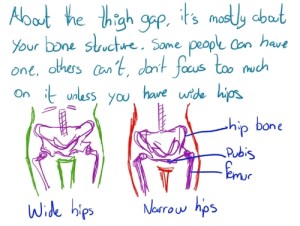 About the thigh gap, it's mostly about
your bone structure. Some people can have
one, others can't, don't focus too much
on it unless you have wide hips
hip bone
Pubis
Femur
Wide hips
Narrow hips